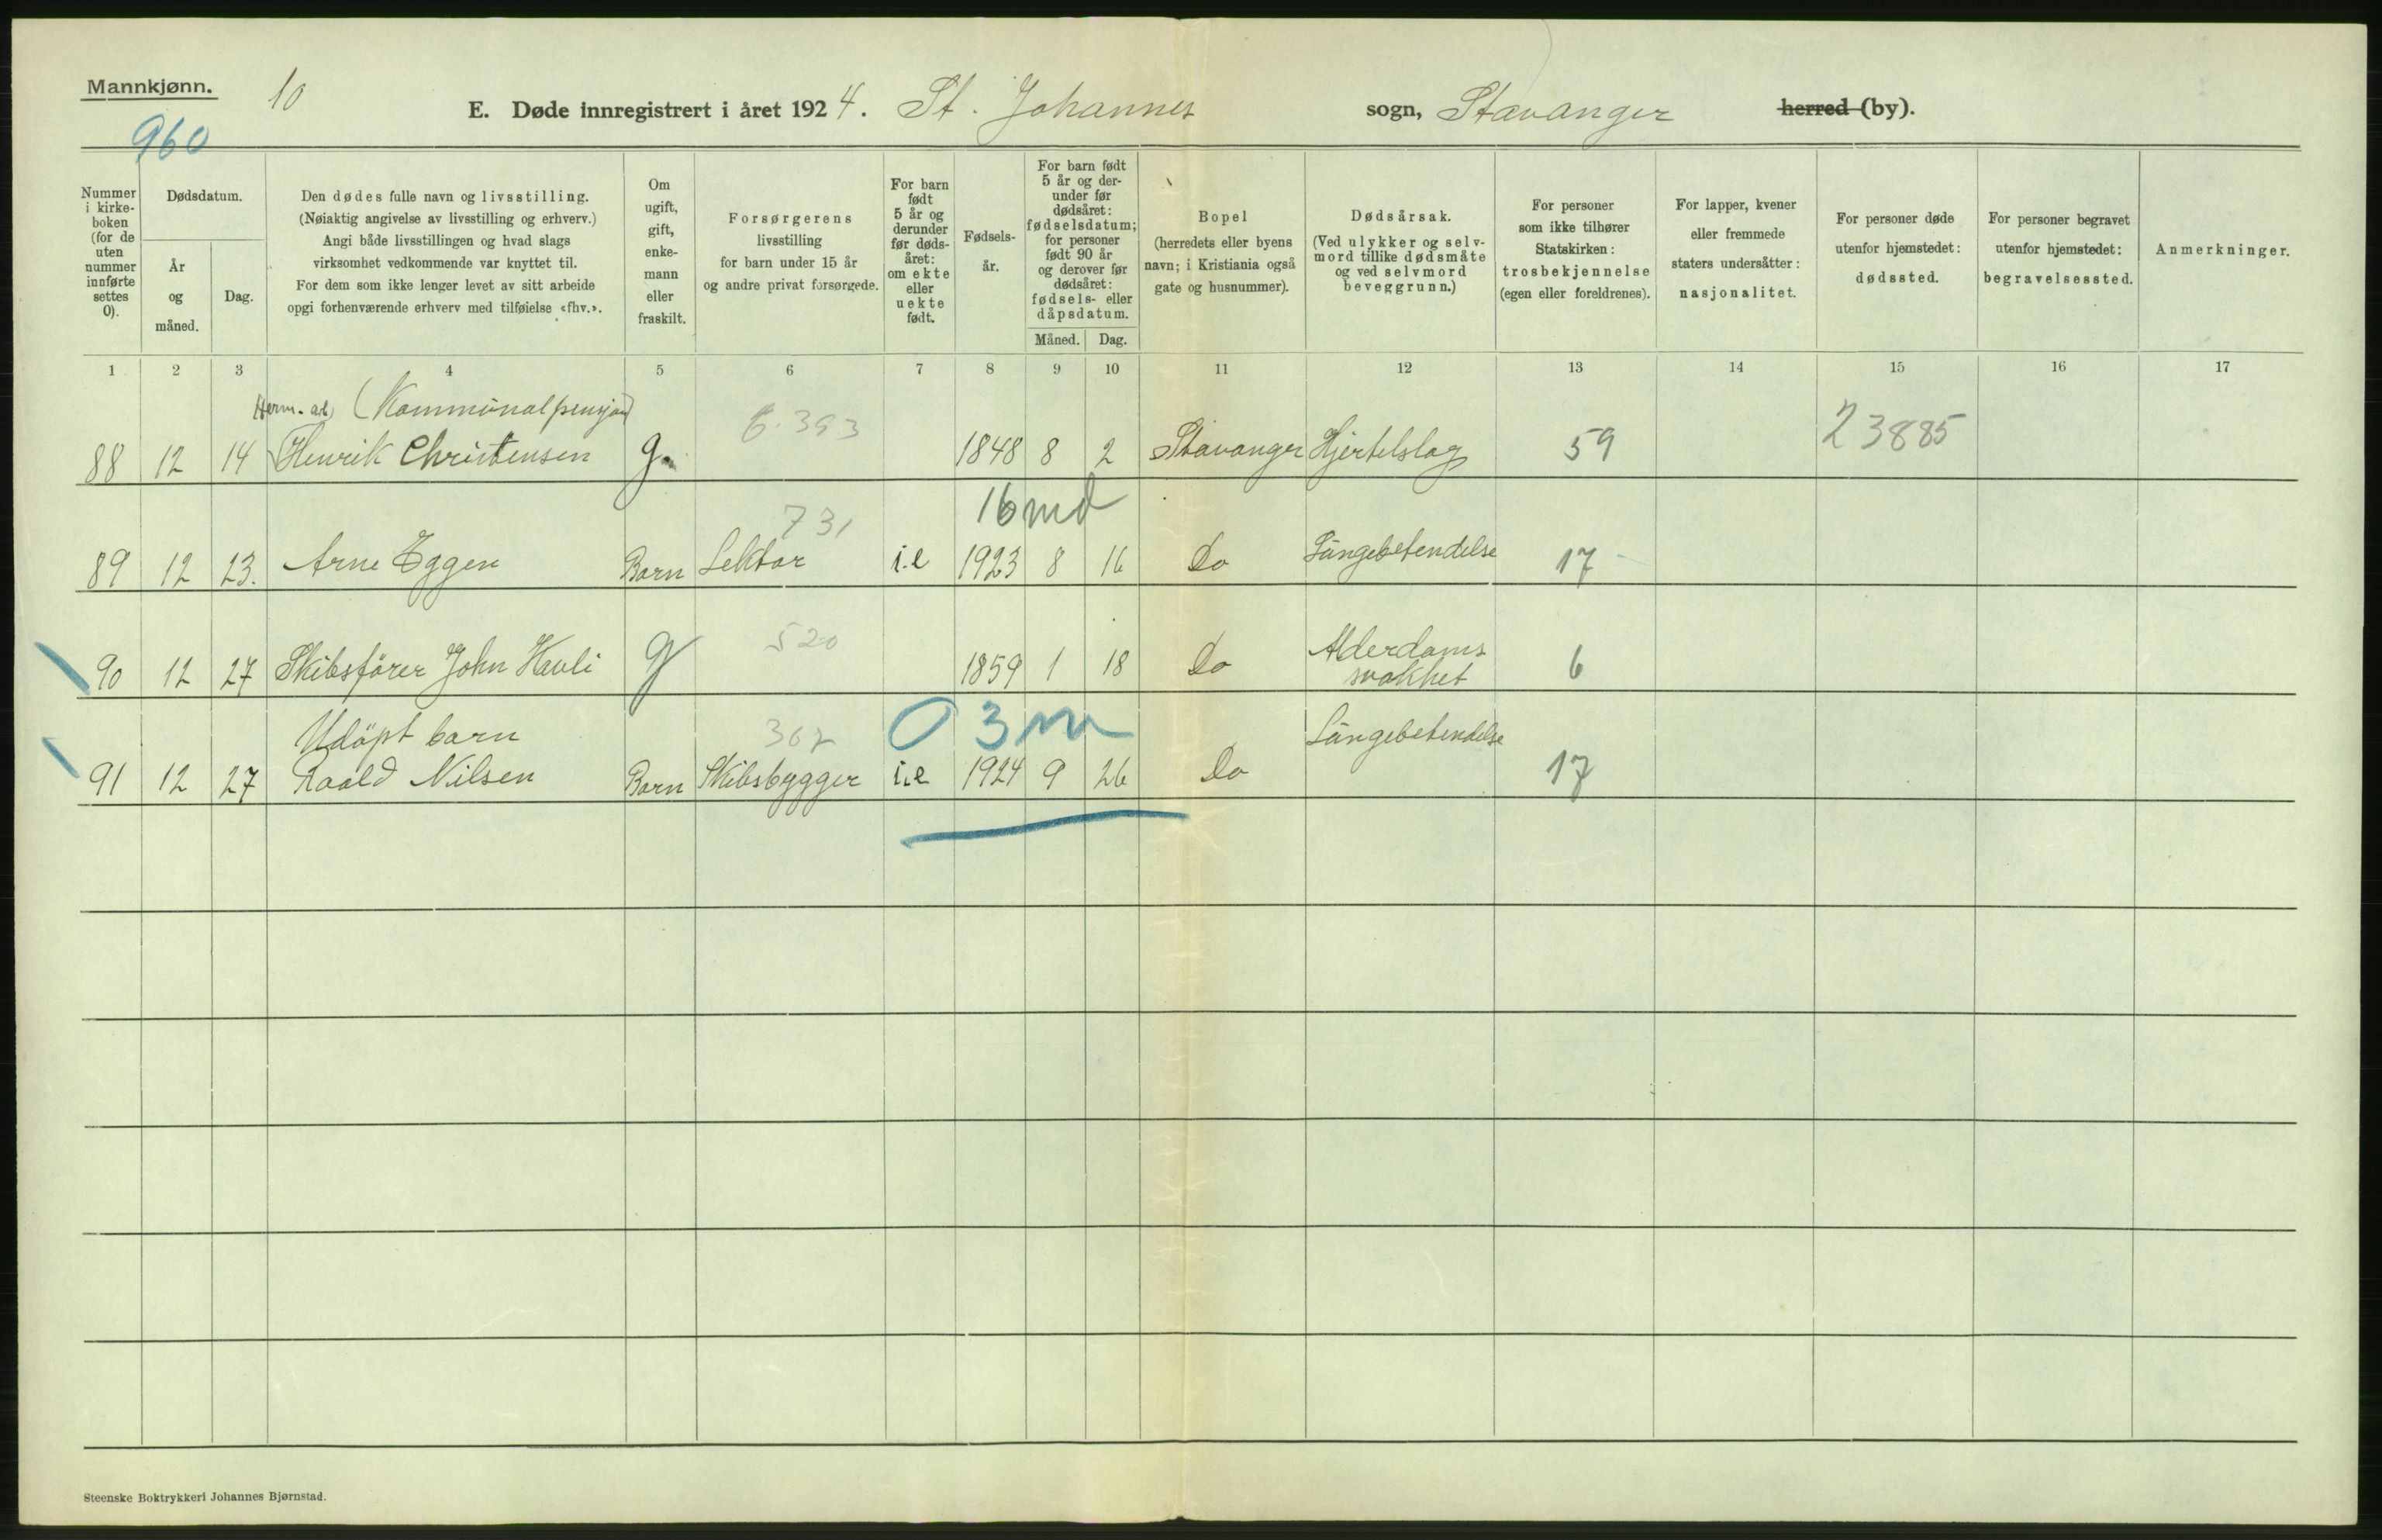 Mannkjønn.
10
E. Døde innregistrert i året 1924. St. Johannes sogn, Stavanger herred (by).
960
Nummer i kirke-boken (for de uten nummer innførte settes 0).
Dødsdatum.
År og måned.
Dag.
Den dødes fulle navn og livsstilling.
(Nøiaktig angivelse av livsstilling og erhverv.)
Angi både livsstillingen og hvad slags
virksomhet vedkommende var knyttet til.
For dem som ikke lenger levet av sitt arbeide
opgi forhenværende erhverv med tilføielse «fhv.».
Om ugift, gift, enke-mann eller fraskilt.
Forsørgerens
livsstilling
for barn under 15 år
og andre privat forsørgede.
For barn født 5 år og derunder før døds-året: om ekte eller uekte født.
Fødsels-år.
For barn født 5 år og der-under før dødsåret: fødselsdatum; for personer født 90 år og derover før dødsåret: fødsels- eller dåpsdatum.
Måned. Dag.
Bopel
(herredets eller byens
navn; i Kristiania også
gate og husnummer).
Dødsårsak.
(Ved ulykker og selv-
mord tillike dødsmåte
og ved selvmord
beveggrunn.)
For personer
som ikke tilhører
Statskirken:
trosbekjennelse
(egen eller foreldrenes).
For lapper, kvener
eller fremmede
staters undersåtter:
nasjonalitet.
For personer døde
utenfor hjemstedet:
dødssted.
For personer begravet
utenfor hjemstedet:
begravelsessted.
Anmerkninger.
1 2 3 4 5 6 7 8 9 10 11 12 13 14 15 16 17
(Kommunalpensjon)
6.393
23885
88 12 14 Henrik Christensen g. 1848 8 2 Stavanger Hjerteslag 59
731 16 md
89 12 23. Arne Eggen Barn Lektor i.e 1923 8 16 Do Lungebetendelse 17
520
90 12 27 Skibsfører John Havli g 1859 1 18 Do Alderdoms
svakhet 6
Udöpt barn 367 0 3 m
91 12 27 Roald Nilsen Barn Skibsbygger i.e 1924 9 26 Do Lungebetendelse 17
Steenske Boktrykkeri Johannes Bjørnstad.